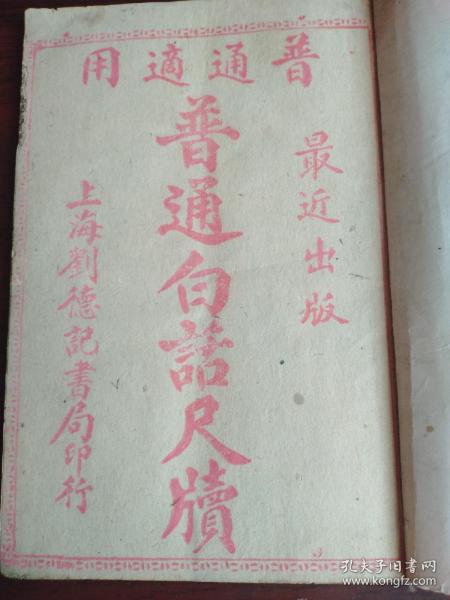 普通適用
最近出版
普通白話尺牘
上海劉德記書局印行
孔夫子旧书网
www.kongfz.com